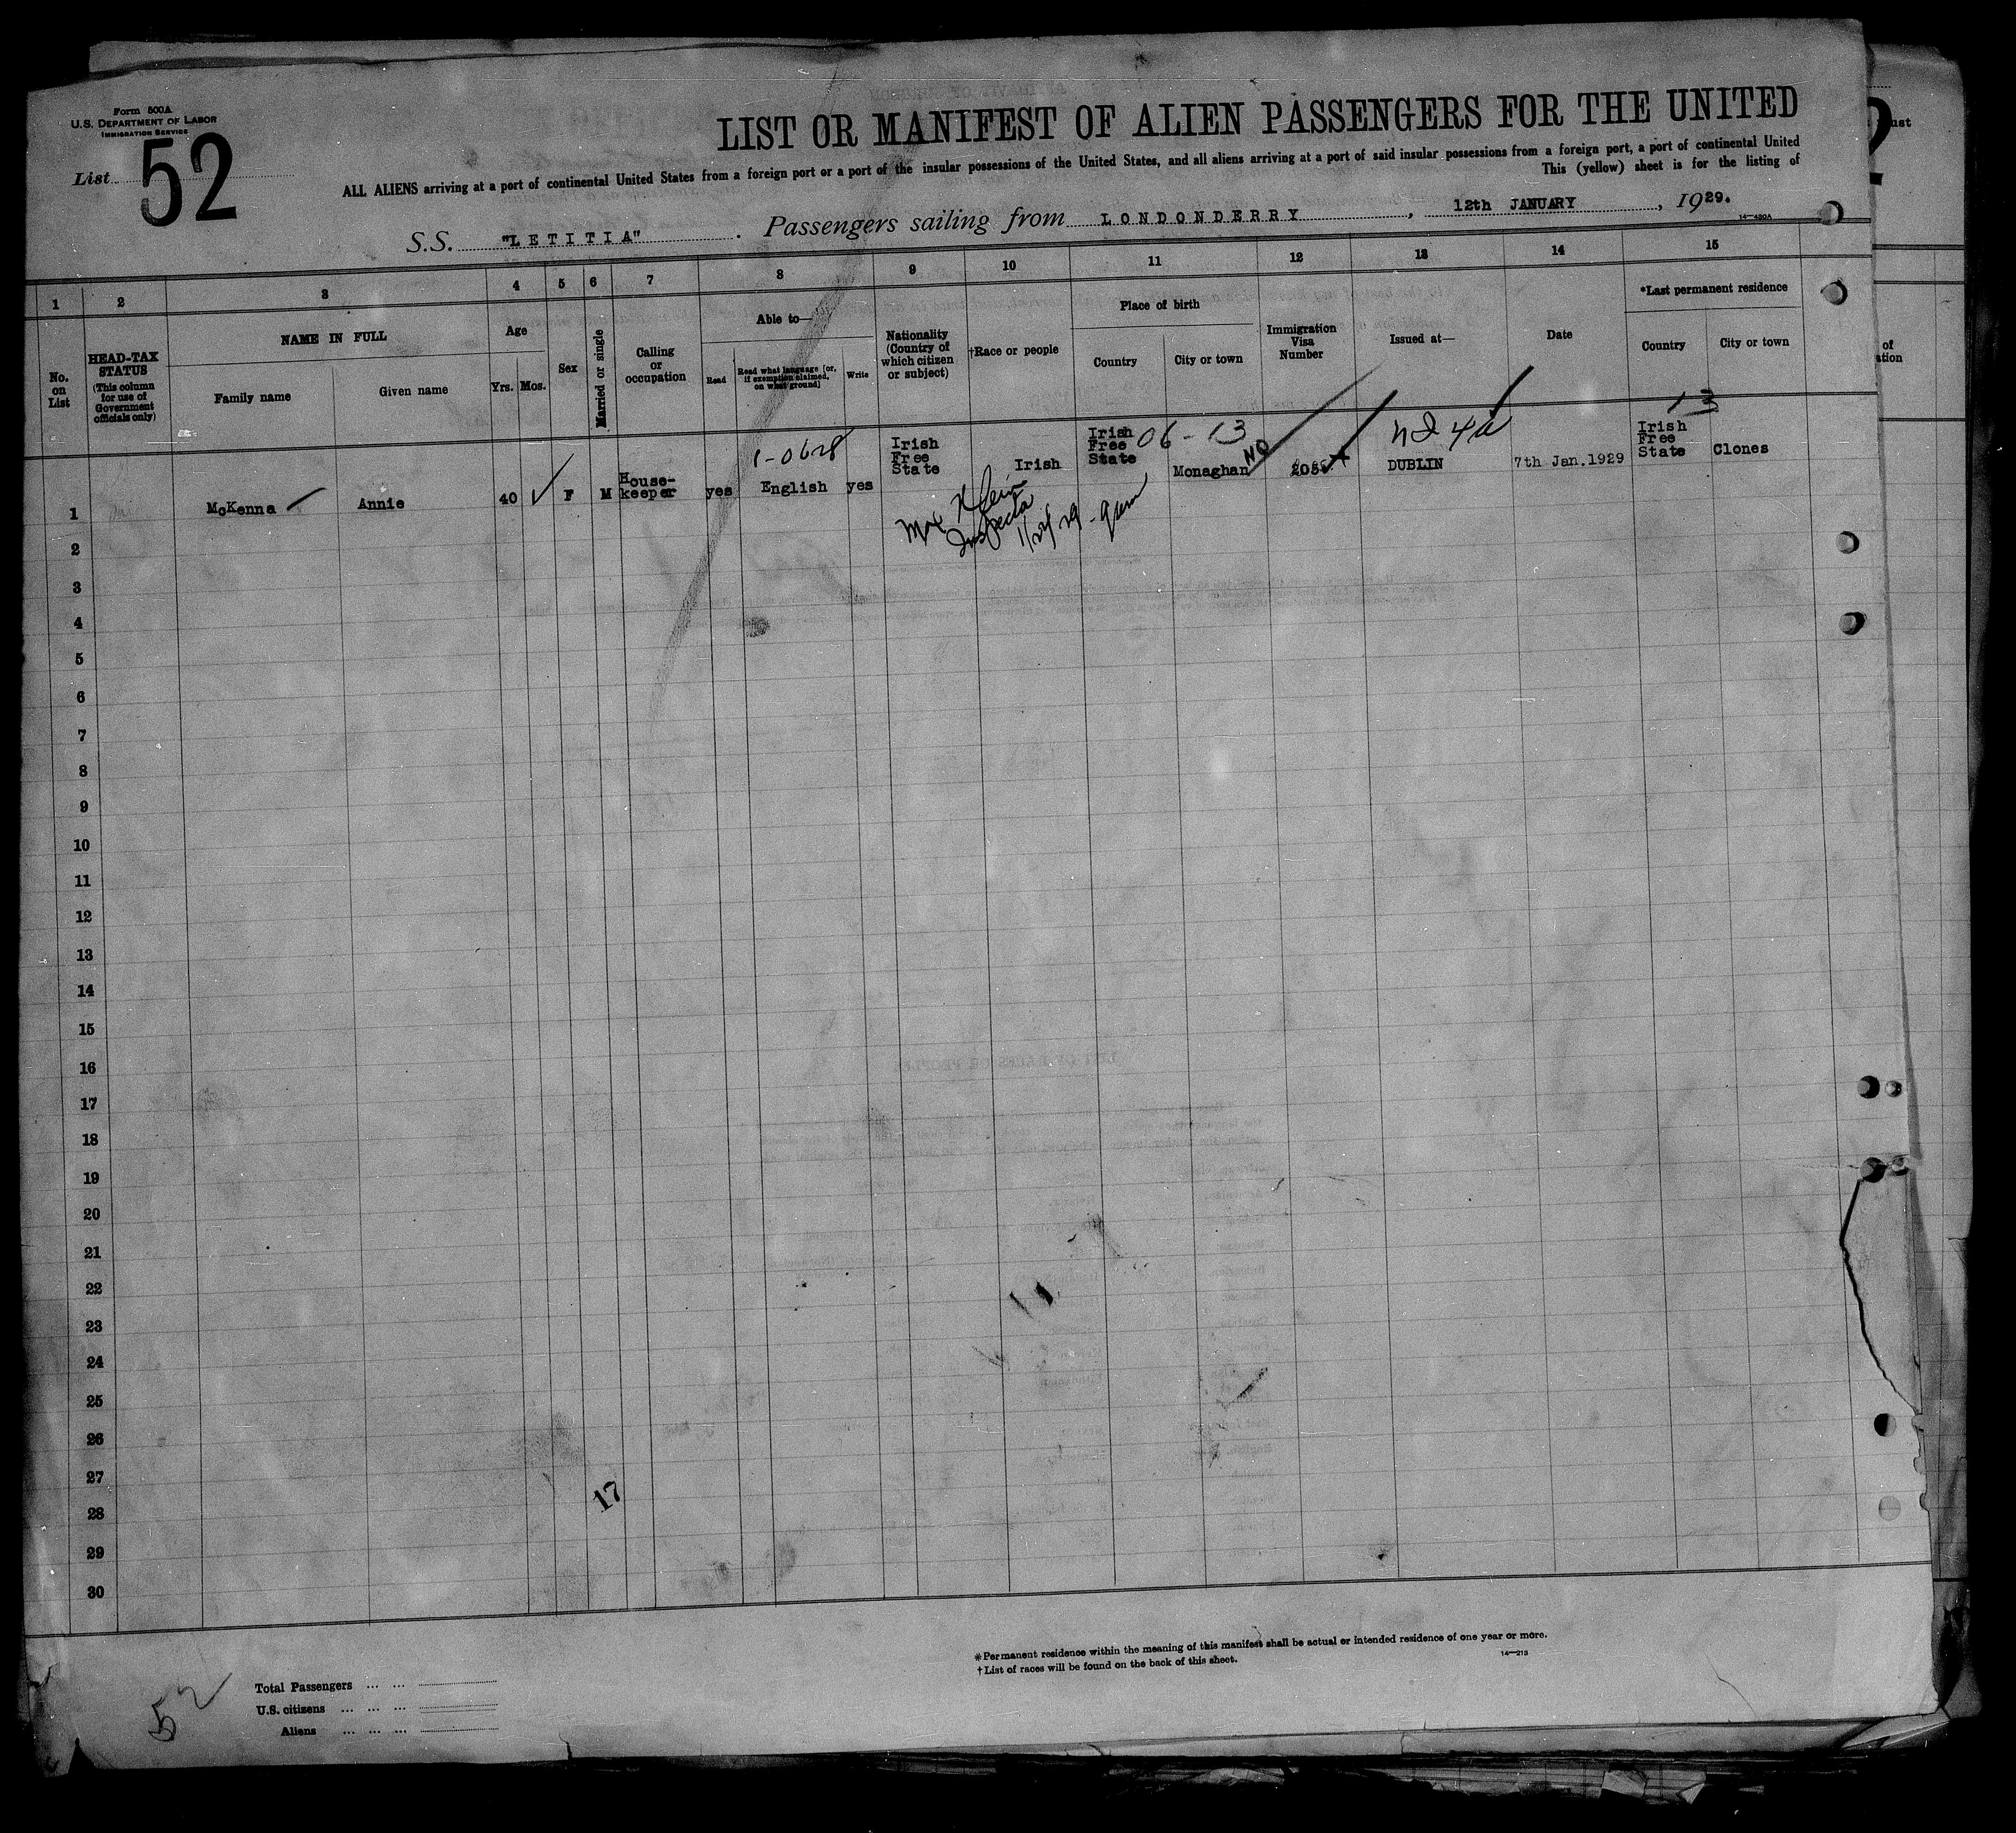 Form 500A
U.S. DEPARTMENT OF LABOR
IMMIGRATION SERVICE
List 52
LIST OR MANIFEST OF ALIEN PASSENGERS FOR THE UNITED
ALL ALIENS arriving at a port of continental United States from a foreign port or a port of the insular possessions of the United States, and all aliens arriving at a port of said insular possessions from a foreign port, a port of continental United
This (yellow) sheet is for the listing of
S.S. "LETITIA". Passengers sailing from LONDONDERRY, 12th JANUARY, 1929.
14—430A
1 2 3 4 5 6 7 8 9 10 11 12 13 14 15
No. on List
HEAD-TAX STATUS (This column for use of Government officials only)
NAME IN FULL
Family name
Given name
Age
Yrs. Mos.
Sex
Married or single
Calling or occupation
Able to—
Read
Read what language [or, if exemption claimed, on what ground]
Write
Nationality (Country of which citizen or subject)
†Race or people
Place of birth
Country
City or town
Immigration Visa Number
Issued at—
Date
*Last permanent residence
Country
City or town
1-0628
06-13
NQ
13
1 McKenna Annie 40 F M House-keeper yes English yes Irish Free State Irish Irish Free State Monaghan DUBLIN 7th Jan.1929 Irish Free State Clones
Klein
Inspector
2
3
4
5
6
7
8
9
10
11
12
13
14
15
16
17
18
19
20
21
22
23
24
25
26
27
17
28
29
30
*Permanent residence within the meaning of this manifest shall be actual or intended residence of one year or more.
†List of races will be found on the back of this sheet.
14—213
52
Total Passengers ... ...
U.S. citizens ... ... ...
Aliens ... ... ...